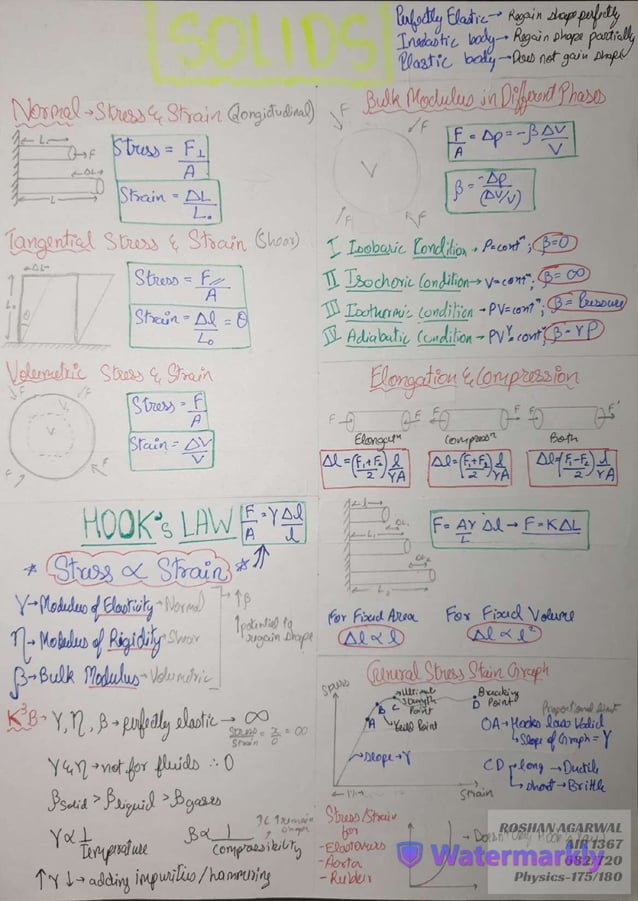 SOLIDS
Perfectly Elastic → Regain shape perfectly
Inelastic body → Regain shape partially
Plastic body → Does not gain shape
Normal → Stress & Strain (Longitudinal)
Stress = F⊥/A
Strain = ΔL/L₀
L₀
F
ΔL
L
Tangential Stress & Strain (Shear)
Stress = F∥/A
Strain = Δl/L₀ = θ
ΔL
L₀
θ
Volumetric Stress & Strain
Stress = F/A
Stain = ΔV/V
F
F
V
F
F
Bulk Modulus in Different Phases
F
F
V
F
F
F/A = Δp = -β ΔV/V
β = -Δp/(ΔV/V)
I Isobaric Condition → P=contⁿ; β=0
II Isochoric Condition → V=contⁿ; β=∞
III Isothermic condition → PV=contⁿ; β=Pressure
IV Adiabatic Condition → PV^γ=contⁿ; β=γP
Elongation & Compression
F F F F F F'
Elongatⁿ Compressⁿ Both
Δl=(F₁+F₂/2) l/YA Δl=(F₁+F₂/2) l/YA Δl=(F₁-F₂/2) l/YA
HOOK's LAW F/A = Y Δl/l
* Stress ∝ Strain *
Y → Modulus of Elasticity → Normal
η → Modulus of Rigidity → Shear
β → Bulk Modulus → Volumetric
↑β
↑potential to regain shape
l
L₁
L₂
F = AY/L Δl → F = KΔL
For Fixed Area For Fixed Volume
Δl ∝ l Δl ∝ l²
K³B → Y, η, β → perfectly elastic → ∞
Stress/Strain = x/0 = ∞
Y & η → not for fluids ∴ 0
βsolid > βliquid > βgases
Y ∝ 1/Temperature β ∝ 1/compressibility
↑Y↓ → adding impurities/hammering
General Stress Stain Graph
Stress
Ultimate Strength Point
Breaking Point
A B C D
Yield Point
slope → Y
Strain
Proportional limit
OA → Hooks law Valid
↳ Slope of Graph = Y
CD → long → Ductile
↳ short → Brittle
Stress/Strain
for
- Elastomers
- Aorta
- Rubber
Watermarkly
ROSHAN AGARWAL
AIR 1367
682/720
Physics-175/180